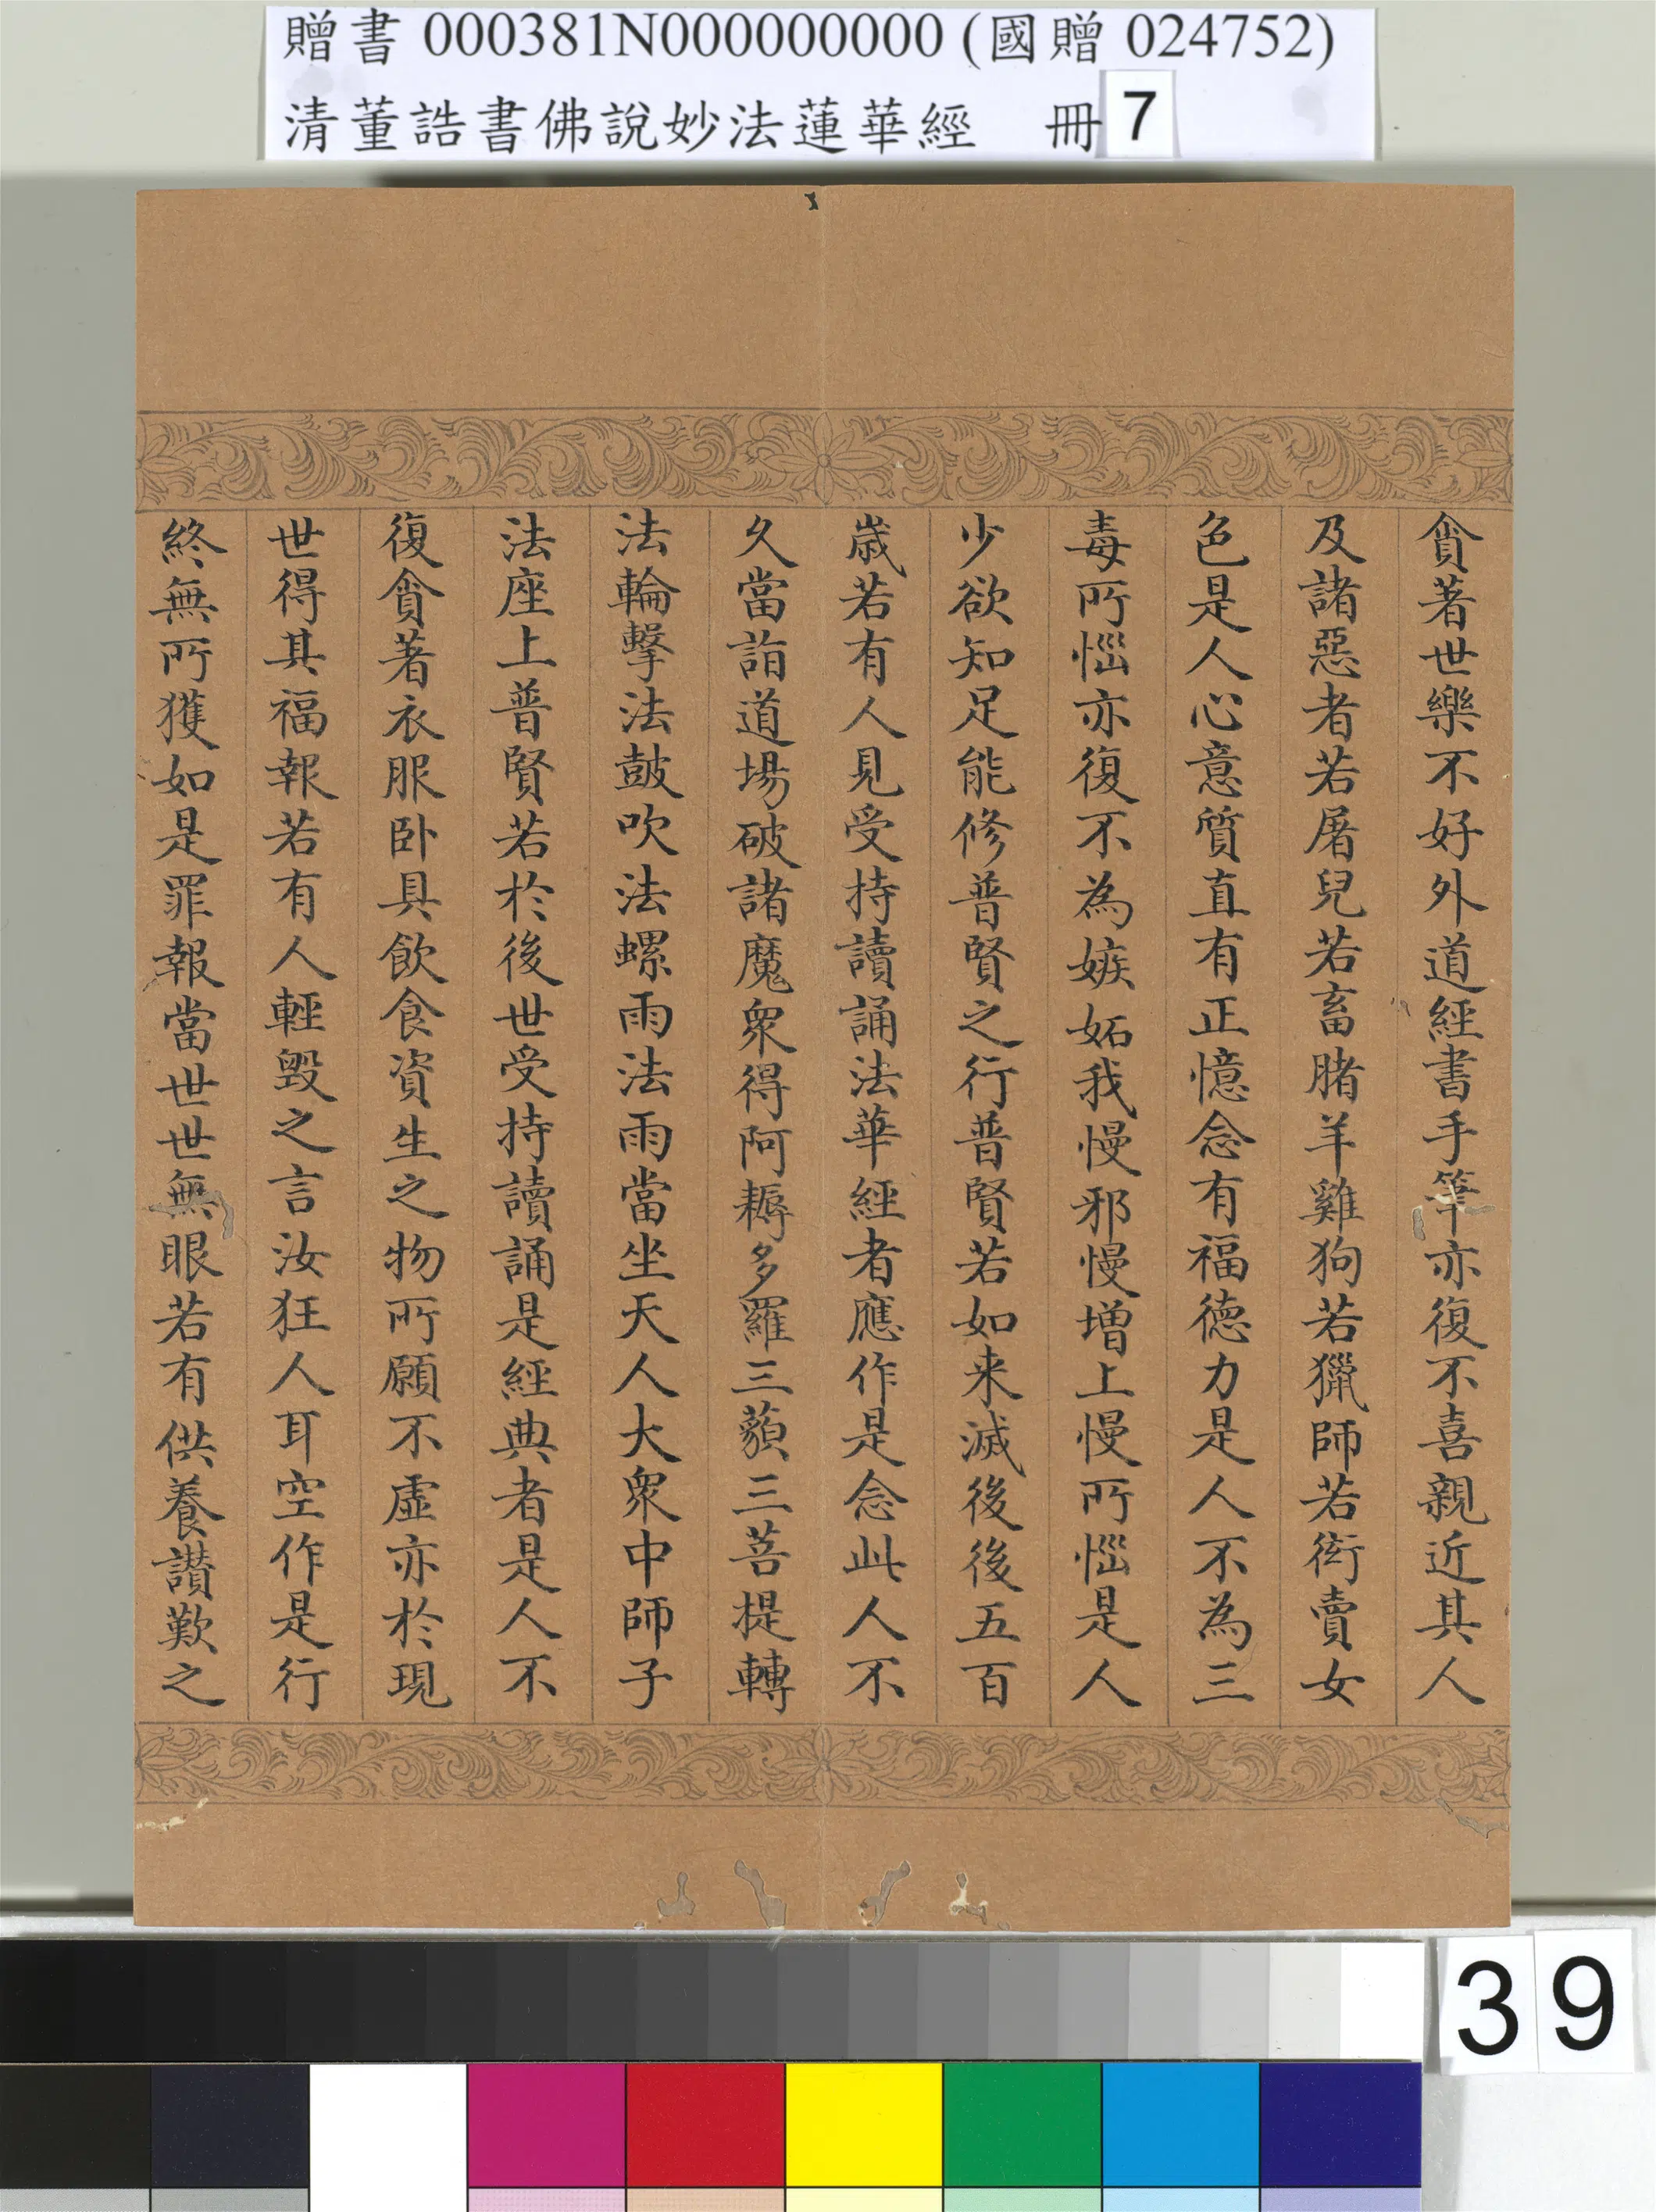 贈書 000381N000000000 (國贈 024752)
清董誥書佛說妙法蓮華經 冊 7
貪著世樂不好外道經書手筆亦復不喜親近其人
及諸惡者若屠兒若畜豬羊雞狗若獵師若衒賣女
色是人心意質直有正憶念有福德力是人不為三
毒所惱亦復不為嫉妬我慢邪慢增上慢所惱是人
少欲知足能修普賢之行普賢若如来滅後後五百
歲若有人見受持讀誦法華經者應作是念此人不
久當詣道場破諸魔眾得阿耨多羅三藐三菩提轉
法輪擊法鼓吹法螺雨法雨當坐天人大眾中師子
法座上普賢若於後世受持讀誦是經典者是人不
復貪著衣服卧具飲食資生之物所願不虛亦於現
世得其福報若有人輕毀之言汝狂人耳空作是行
終無所獲如是罪報當世世無眼若有供養讚歎之
39